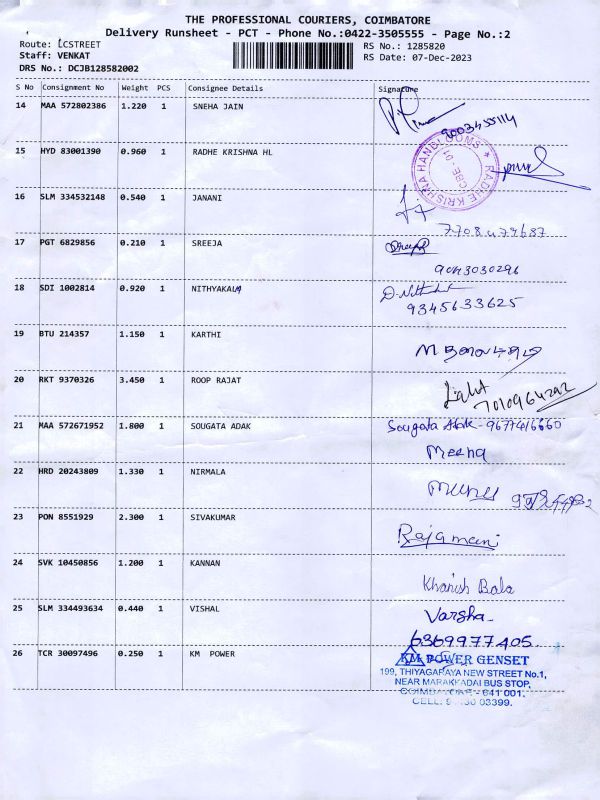 THE PROFESSIONAL COURIERS, COIMBATORE
Delivery Runsheet - PCT - Phone No.:0422-3505555 - Page No.:2
Route: LCSTREET
RS No.: 1285820
Staff: VENKAT
RS Date: 07-Dec-2023
DRS No.: DCJB128582002
S No Consignment No Weight PCS Consignee Details Signature
14 MAA 572802386 1.220 1 SNEHA JAIN
9003455114
15 HYD 83001390 0.960 1 RADHE KRISHNA HL
★ RADHE KRISHNA HANDLOOMS ★
CBE - 01
16 SLM 334532148 0.540 1 JANANI
7708479687
17 PGT 6829856 0.210 1 SREEJA
9043030296
18 SDI 1002814 0.920 1 NITHYAKALA
9345633625
19 BTU 214357 1.150 1 KARTHI
20 RKT 9370326 3.450 1 ROOP RAJAT
21 MAA 572671952 1.800 1 SOUGATA ADAK Sougata Adak - 9677416660
Meena
22 HRD 20243809 1.330 1 NIRMALA
23 PON 8551929 2.300 1 SIVAKUMAR
Rajamani
24 SVK 10450856 1.200 1 KANNAN
Khanish Bala
25 SLM 334493634 0.440 1 VISHAL
Varsha
6369977405
26 TCR 30097496 0.250 1 KM POWER
KM POWER GENSET
199, THIYAGARAYA NEW STREET No.1,
NEAR MARAKKADAI BUS STOP,
COIMBATORE - 641 001.
CELL: 03399.